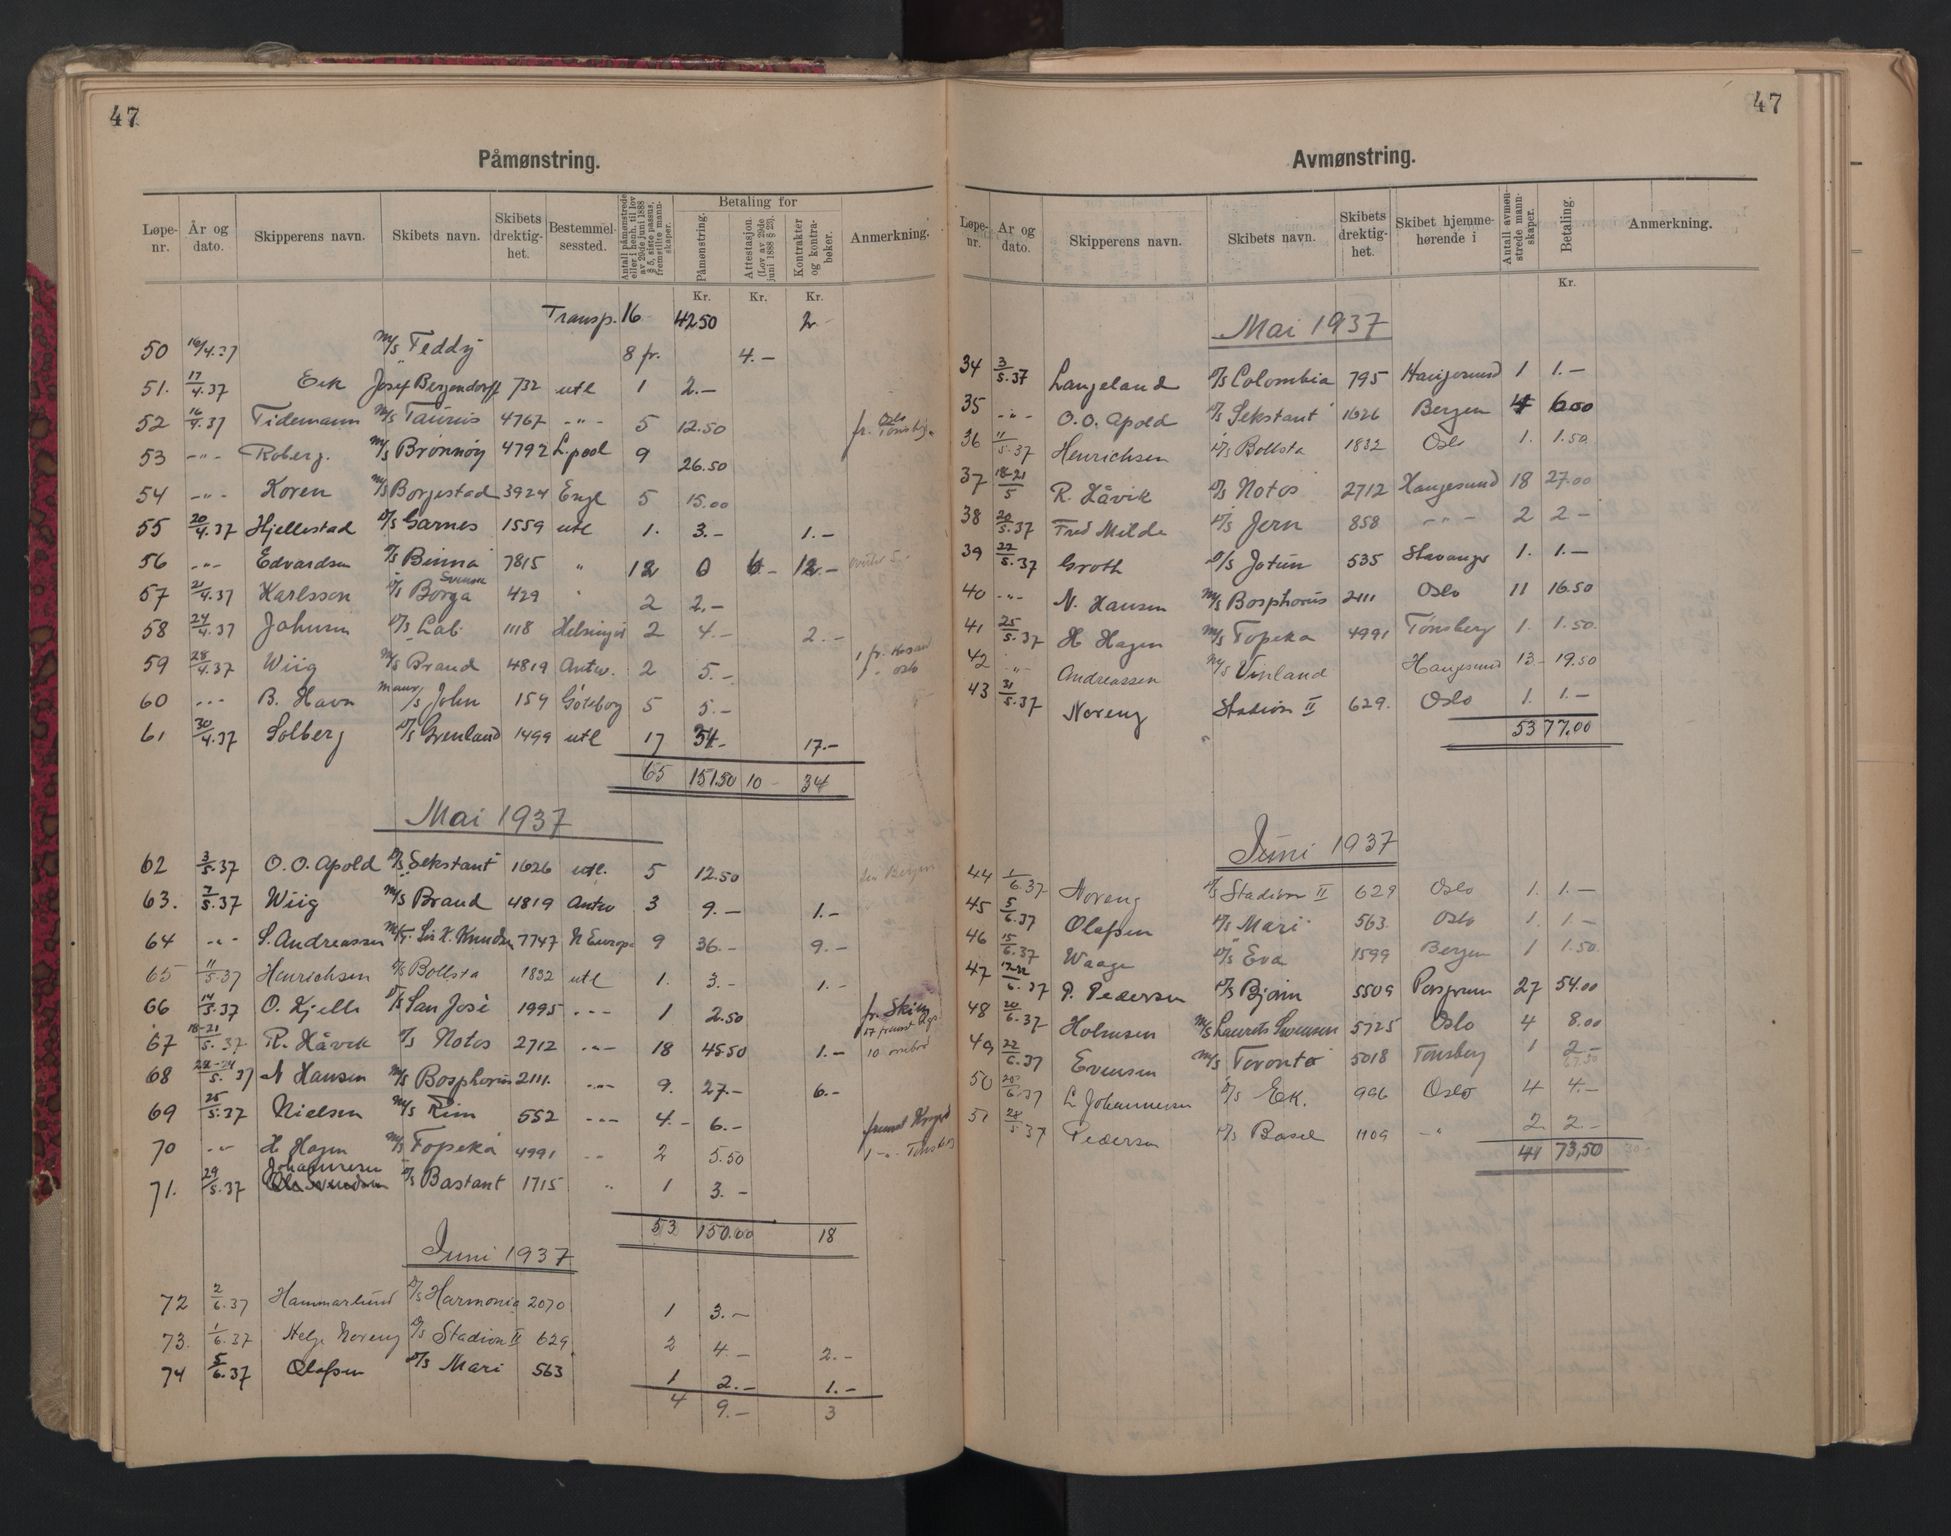 47
Påmønstring.
Løpe-nr. År og dato. Skipperens navn. Skibets navn. Skibets drektig-het. Bestemmel-sessted. Antall påmønstrede eller i henh. til lov av 29de juni 1888 § 5, siste passus, fremstilte mann-skaper. Betaling for Påmønstring. Attestasjon (Lov av 29de juni 1888 § 23). Kontrakter og kontra-bøker. Anmerkning.
Kr. Kr. Kr.
Transp. 16 42 50 2 -
50 16/4.37 M/S Teddy 8 fr. 4.-
51. 17/4.37 Eek Josef Bergendorff 732 utl 1 2.-
52 16/4.37 Tidemann M/S Taurus 4767 -"- 5 12.50 fr. Oslo
53 -"- Roberg. M/S Brønnøy 4792 L.pool 9 26.50
54 -"- Koren M/S Borgestad 3924 Engl 5 15.00
55 20/4.37 Hjellestad D/S Garnes 1559 utl 1. 3.- 1.-
56 -"- Edvardsen D/S Binna 7815 " 12 0 6- 12.-
57 21/4.37 Karlsson D/S Svensk Borga 429 " 2 2.-
58 24/4.37 Johnsen D/S Lab. 1118 Helsingør 2 4.- 2.-
59 28/4.37 Wiig M/S Brand 4819 Antw. 2 5.- 1 fr. Oslo
60 -"- B. Havn M/S John 159 Göteborg 5 5.-
61 30/4.37 Solberg D/S Grenland 1499 utl 17 34.- 17.-
65 151.50 10 - 34
Mai 1937
62 3/5.37 O. O. Apold D/S Sekstant 1626 utl. 5 12.50
63. 7/5.37 Wiig M/S Brand 4819 Antw 3 9.- 1.-
64 -"- S. Andreassen M/T. Sir K. Knudsen 7747 N Europa 9 36.- 9.-
65 11/5.37 Henrichsen D/S Bollsta 1832 utl 1. 3.- 1.-
66 14/5.37 O. Kjelle D/S San José 1995 -"- 1 2.50
67 18-21/5.37 R. Håvik D/S Notos 2712 -"- 18 45.50 1.-
68 22-24/5.37 N Hansen M/S Bosphorus 2111. -"- 9. 27.- 6.-
69 25/5.37 Nielsen M/S Rim 552 -"- 4.- 6.-
70 -"- H Hagen M/S Topeka 4991 -"- 2 5.50
71. 29/5.37 Johannesen D/S Bastant 1715 " 1 3.-
53 150.00 18
Juni 1937
72 2/6.37 Hammarlund D/S Harmonia 2070 1 3.-
73. 1/6.37 Helge Noreng D/S Stadion II 629 2 4.- 2.-
74 5/6.37 Olafsen D/S Mari 563 1 2.- 1.-
4 9.- 3
47
Avmønstring.
Løpe-nr. År og dato. Skipperens navn. Skibets navn. Skibets drektig-het. Skibet hjemme-hørende i Antall avmøn-strede mann-skaper. Betaling. Anmerkning.
Kr.
Mai 1937
34 3/5.37 Langeland D/S Colombia 795 Haugesund 1 1.-
35 -"- O. O. Apold D/S Sekstant 1626 Bergen 4 6.00
36 11/5.37 Henrichsen D/S Bollsta 1832 Oslo 1. 1.50
37 18-21/5 R. Håvik D/S Notos 2712 Haugesund 18 27.00
38 20/5.37 Fred Milde D/S Jern 858 -"- 2 2-
39 22/5.37 Groth D/S Jotun 535 Stavanger 1. 1.-
40 -"- N. Hansen M/S Bosphorus 2111 Oslo 11 16.50
41 25/5.37 H Hagen M/S Topeka 4991 Tønsberg 1. 1.50
42 -"- Andreassen M/S Vinland Haugesund 13- 19.50
43 31/5.37 Noreng Stadion II 629. Oslo 1. 1.-
53 77.00
Juni 1937
44 1/6.37 Noreng D/S Stadion II 629 Oslo 1. 1.-
45 5/6.37 Olafsen D/S Mari 563 Oslo 1 1.-
46 15/6.37 Waage D/S Eva 1599 Bergen 1 1.50
47 17-22/6.37 P. Pedersen D/S Bjørn 5509 Porsgrunn 27 54.00
48 20/6.37 Holmsen M/S Laurits Swenson 5725 Oslo 4 8.00
49 22/6.37 Evensen M/S Toronto 5018 Tønsberg 1 2.-
50 25/6.37 L Johannesen D/S Ek. 996 Oslo 4 4.-
51 28/5.37 Pedersen D/S Basel 1109 -"- 2 2.-
41 73,50